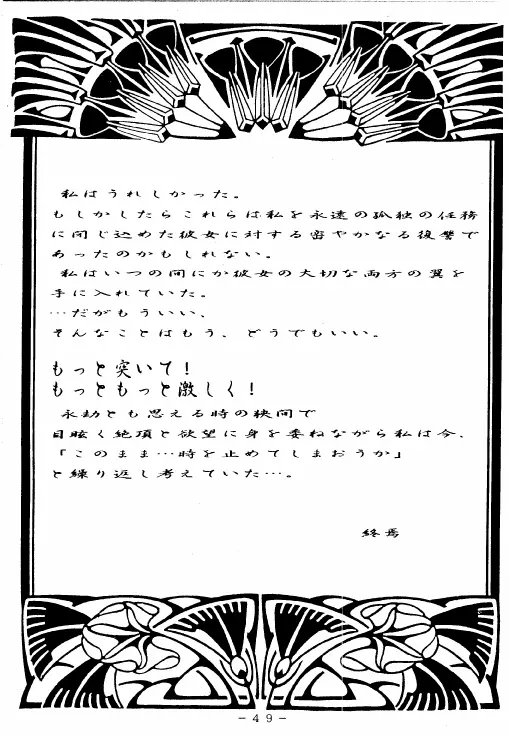 私はうれしかった。
もしかしたらこれらは私を永遠の孤独の任務
に閉じ込めた彼女に対する密やかなる復讐で
あったのかもしれない。
私はいつの間にか彼女の大切な両方の翼を
手に入れていた。
…だがもういい、
そんなことはもう、どうでもいい。
もっと突いて！
もっともっと激しく！
永劫とも思える時の狭間で
目眩く絶頂と欲望に身を委ねながら私は今、
「このまま…時を止めてしまおうか」
と繰り返し考えていた…。
終焉
-49-